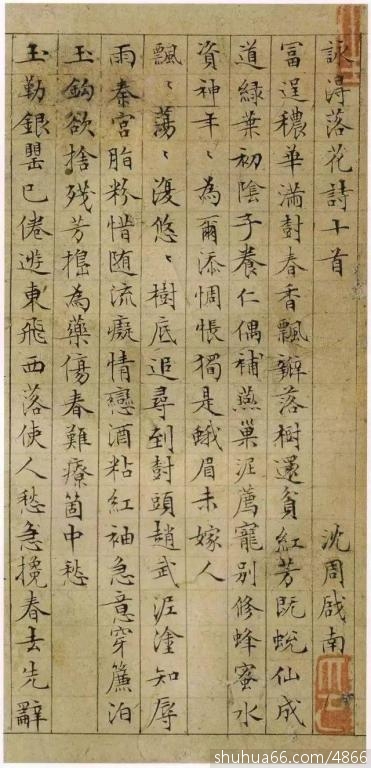 詠得落花詩十首 沈周啟南
富逞穠華滿樹春香飄瓣落樹還貧紅芳既蛻仙成
道綠葉初陰子養仁偶補燕巢泥薦寵別修蜂蜜水
資神年〻為爾添惆悵獨是蛾眉未嫁人
飄〻蕩〻復悠〻樹底追尋到樹頭趙武泥塗知辱
雨秦宮脂粉惜随流癡情戀酒粘紅袖急意穿簾泊
玉鈎欲捨殘芳搗為藥傷春難療箇中愁
玉勒銀罌已倦遊東飛西落使人愁急攙春去先辭
shuhua66.com/4866